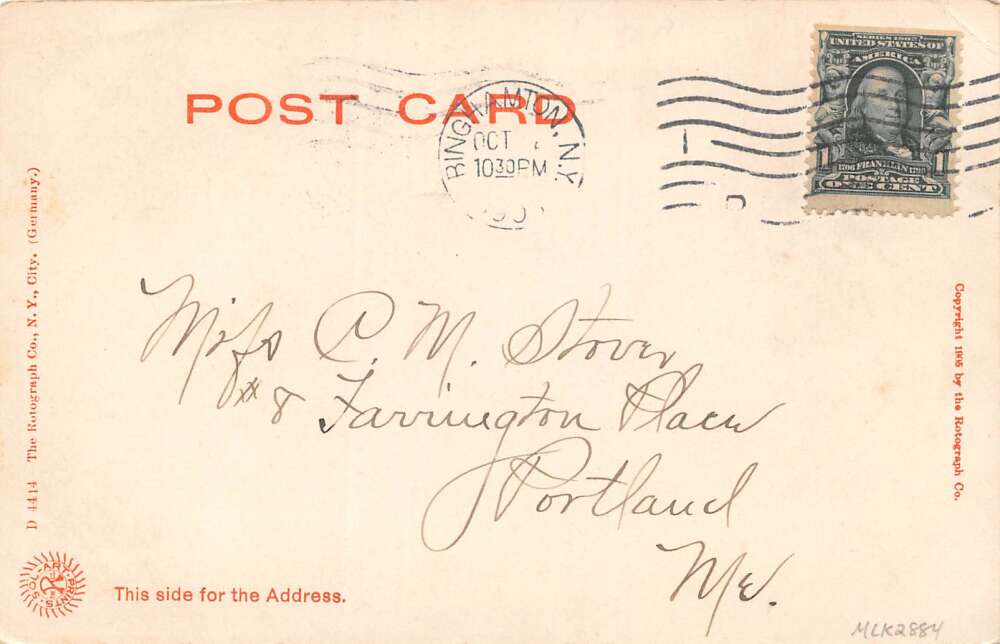 POST CARD
BINGHAMTON, N.Y.
OCT
10 30 PM
SERIES 1902
UNITED STATES OF
AMERICA
1706 FRANKLIN 1790
POSTAGE
1 ONE CENT 1
Miss C. M. Stover
#8 Farrington Place
Portland
Me.
D 4414 The Rotograph Co., N. Y., City. (Germany.)
Copyright 1905 by the Rotograph Co.
SOL-ART-PRINTS
This side for the Address.
MLK2884